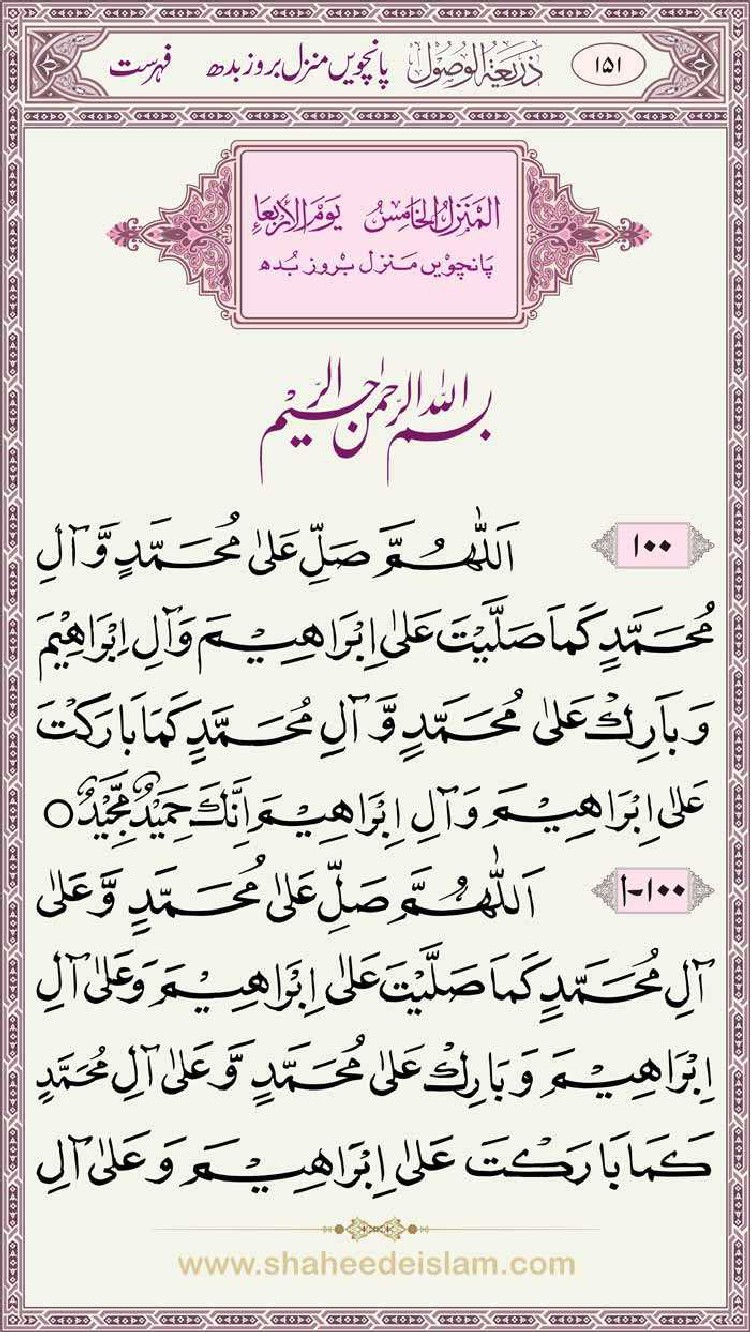 ۱۵۱ ذَرِیعَۃُ الْوُصُوْل پانچویں منزل بروز بدھ فہرست
اَلْمَنْزِلُ الْخَامِسُ یَوْمُ الْاَرْبِعَاءِ
پَانچویں مَنزل بروز بُدھ
بسم اللہ الرحمٰن الرحیم
۱۰۰ اَللّٰهُمَّ صَلِّ عَلٰی مُحَمَّدٍ وَّ آلِ
مُحَمَّدٍ كَمَا صَلَّيْتَ عَلٰی اِبْرَاهِيْمَ وَآلِ اِبْرَاهِيْمَ
وَ بَارِكْ عَلٰی مُحَمَّدٍ وَّ آلِ مُحَمَّدٍ كَمَا بَارَكْتَ
عَلٰی اِبْرَاهِيْمَ وَ آلِ اِبْرَاهِيْمَ اِنَّكَ حَمِيْدٌ مَّجِيْدٌ ○
۱۰۰-ا اَللّٰهُمَّ صَلِّ عَلٰی مُحَمَّدٍ وَّ عَلٰی
آلِ مُحَمَّدٍ كَمَا صَلَّيْتَ عَلٰی اِبْرَاهِيْمَ وَعَلٰی آلِ
اِبْرَاهِيْمَ وَ بَارِكْ عَلٰی مُحَمَّدٍ وَّ عَلٰی آلِ مُحَمَّدٍ
كَمَا بَارَكْتَ عَلٰی اِبْرَاهِيْمَ وَ عَلٰی آلِ
www.shaheedeislam.com